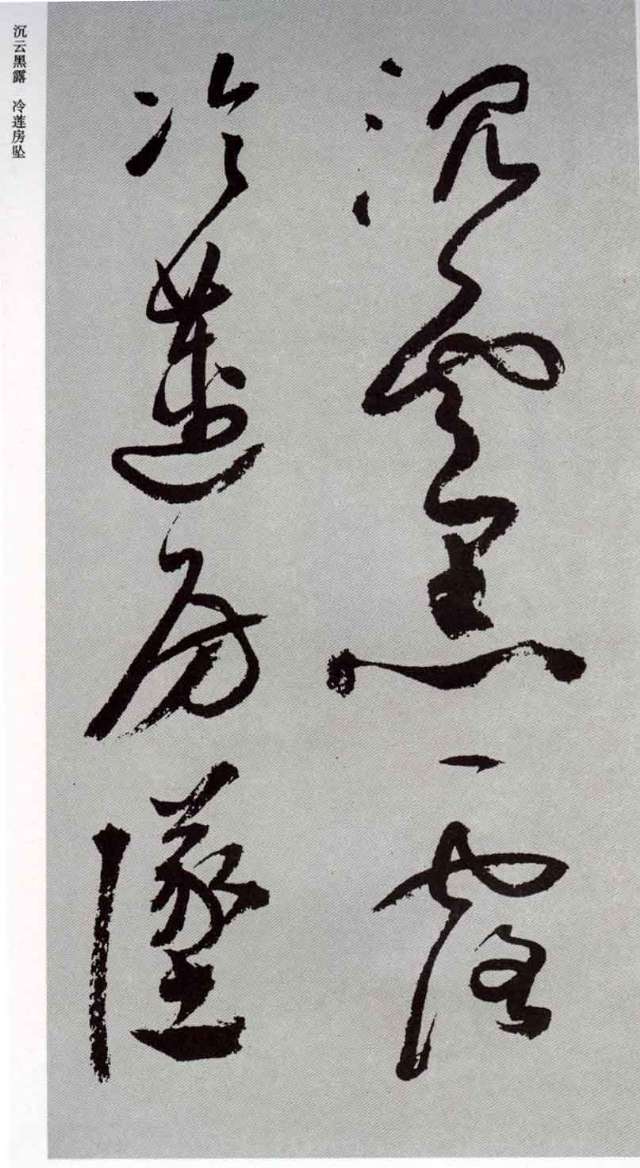 沉雲黑露
冷蓮房墜
沉云黑露 冷莲房坠